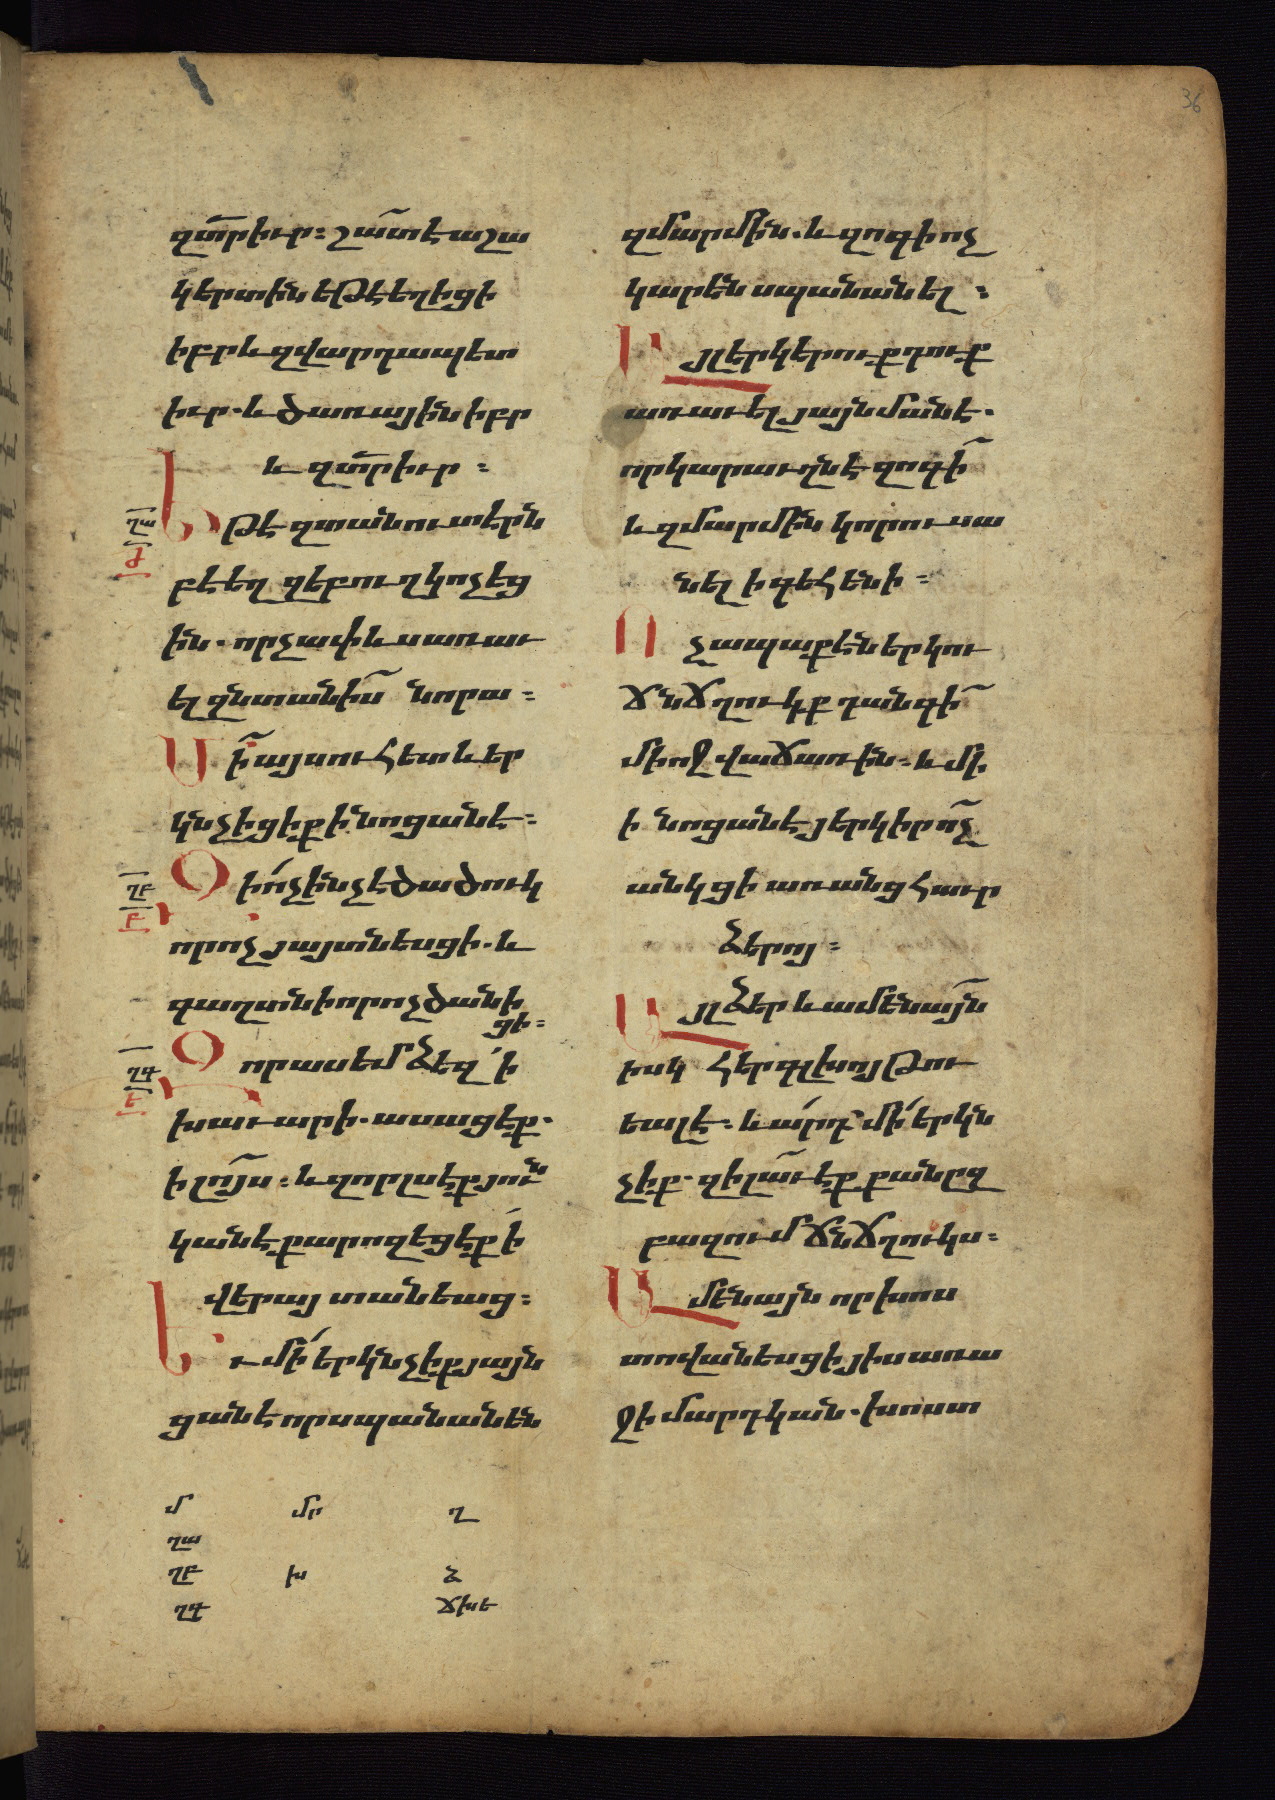 36
զտ̅ր իւր։ շատ է աշա
կերտին եթէ եղիցի
իբրև զվարդապետ
իւր. և ծառային իբր
և զտ̅ր իւր։
Եթէ զտանուտէրն
բէեղզեբուղ կոչեց
ին. որչափ ևս առաւ
ել զընտանիս նորա։
Մի՛ այսուհետև եր
կնչիցիք ի նոցանէ։
Զի ո՛չ ինչ է ծածուկ
որ ոչ յայտնեսցի. և
գաղտնի որ ոչ ծանի
ցի։
Զոր ասեմ ձեզ՛ ի
խաւարի. ասացէք.
ի լոյս։ և զոր լսէք յուն
կանէ քարոզեցէք ի՛
վերայ տանեաց։
Եւ մի՛ երկնչիք յայն
ցանէ որ սպանանեն
զմարմին. և զոգի ոչ
կարեն սպանանել։
Այլ երկերուք դուք
առաւել յայնմանէ.
որ կարաւղն է զոգի
և զմարմին կորուսա
նել ի գեհենի։
Ոչ ապաքէն երկու
ճնճղուկք դանգի
միոջ վաճառին։ և մի
ի նոցանէ յերկիր ոչ
անկցի առանց հաւր
ձերոյ։
Այլ ձեր և ամենայն
իսկ հեր գլխոյ թու
եալ է։ և արդ՝ մի՛ երկն
չիք. զի լաւ էք քան զբ
բազում ճնճղուկս։
Ամենայն որ խոս
տովանեսցի յիս առա
ջի մարդկան. խոստ
ղա
ժ
ղբ
բ
ղգ
ե
մ մր ղ
ղա
ղբ խ ձ
ղգ ճխե